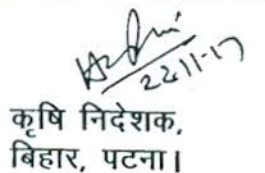 22-11-17
कृषि निदेशक,
बिहार, पटना।